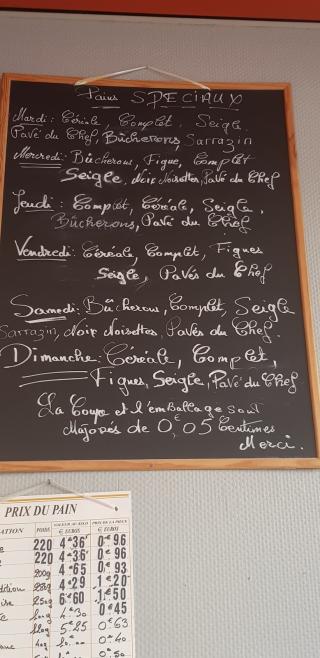 Pains SPECIAUX
Mardi: Céréale, Complet, Seigle.
Pavé du Chef, Bûcherons, Sarrazin
Mercredi: Bûcherons, Figue, Complet
Seigle, Noix Noisettes, Pavé du Chef
Jeudi: Complet, Céréale, Seigle,
Bûcherons, Pavé du Chef
Vendredi: Céréale, Complet, Figues
Seigle, Pavés du Chef
Samedi: Bûcherons, Complet, Seigle
Sarrazin, Noix Noisettes, Pavés du Chef.
Dimanche: Céréale, Complet,
Figues, Seigle, Pavé du Chef
La Coupe et l'emballage sont
Majorés de 0€05 Centimes
Merci.
PRIX DU PAIN
ATION POIDS VALEUR AU KILO € EUROS PRIX DE LA PIECE € EUROS
220 4€36 0€96
220 4€36 0€96
200g 4€65 0€93
dition 4€29 1€20
250g 6€60 1€50
4€30 0€45
120g 5€25 0€63
40g 0€40
0€50